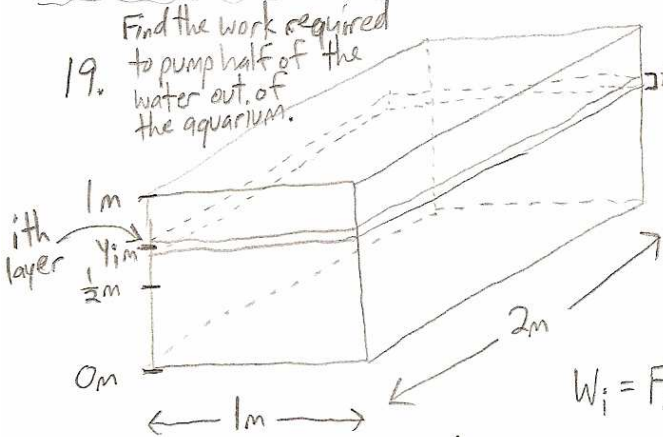 Find the work required
19. to pump half of the
water out of
the aquarium.
1m
ith
layer
yᵢm
½m
0m
1m
2m
Wᵢ = F